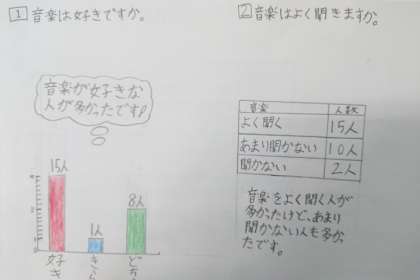 1 音楽は好きですか。
音楽が好きな
人が多かったです!
15人
1人
8人
好き
きら
どち
2 音楽はよく聞きますか。
音楽 人数
よく聞く 15人
あまり聞かない 10人
聞かない 2人
音楽をよく聞く人が
多かったけど、あまり
聞かない人も多かっ
たです。